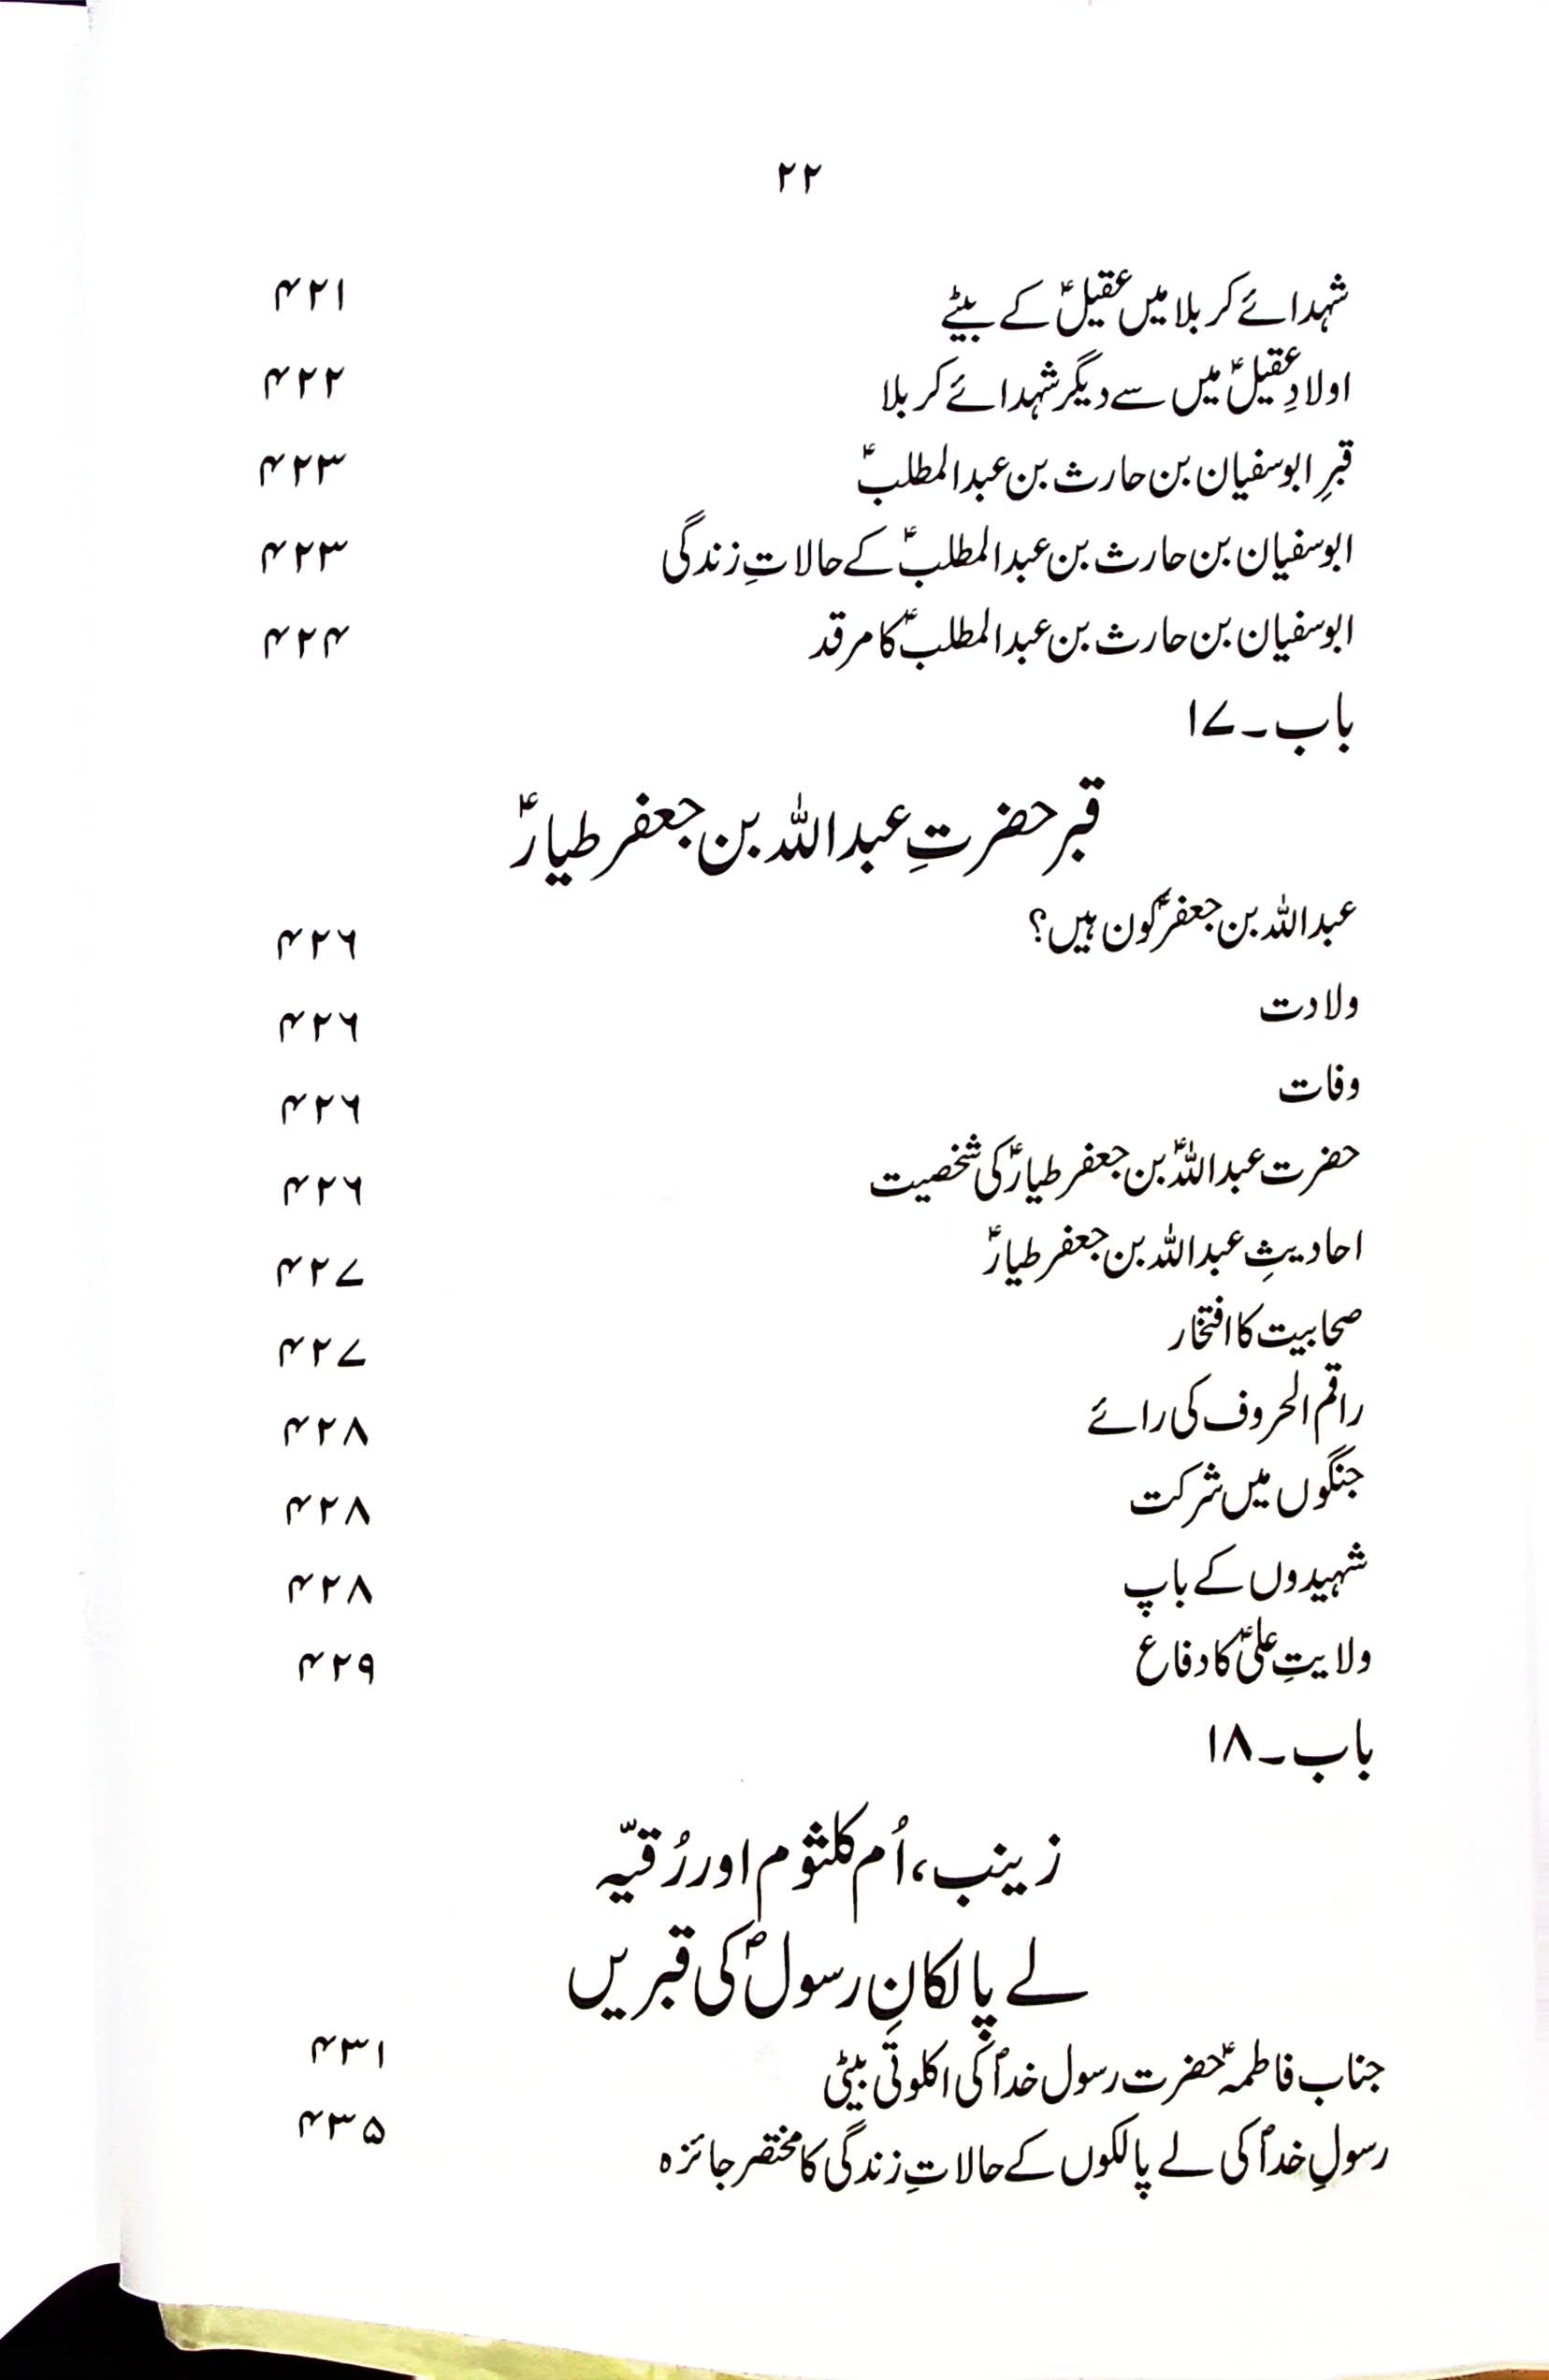 ۲۲
شہدائے کربلا میں عقیلؑ کے بیٹے ۴۲۱
اولادِ عقیلؑ میں سے دیگر شہدائے کربلا ۴۲۲
قبرِ ابوسفیان بن حارث بن عبدالمطلبؑ ۴۲۳
ابوسفیان بن حارث بن عبدالمطلبؑ کے حالاتِ زندگی ۴۲۳
ابوسفیان بن حارث بن عبدالمطلبؑ کا مرقد ۴۲۴
باب۔۱۷
قبر حضرتِ عبداللہ بن جعفر طیارؑ
عبداللہ بن جعفرؑ کون ہیں؟ ۴۲۶
ولادت ۴۲۶
وفات ۴۲۶
حضرت عبداللہؑ بن جعفر طیارؑ کی شخصیت ۴۲۶
احادیثِ عبداللہ بن جعفر طیارؑ ۴۲۷
صحابیت کا افتخار ۴۲۷
راقم الحروف کی رائے ۴۲۸
جنگوں میں شرکت ۴۲۸
شہیدوں کے باپ ۴۲۸
ولایتِ علیؑ کا دفاع ۴۲۹
باب۔۱۸
زینب، اُم کلثوم اور رُقیّہ
لے پالکانِ رسولؐ کی قبریں
جناب فاطمہؑ حضرت رسول خداؐ کی اکلوتی بیٹی ۴۳۱
رسولِ خداؐ کی لے پالکوں کے حالاتِ زندگی کا مختصر جائزہ ۴۳۵